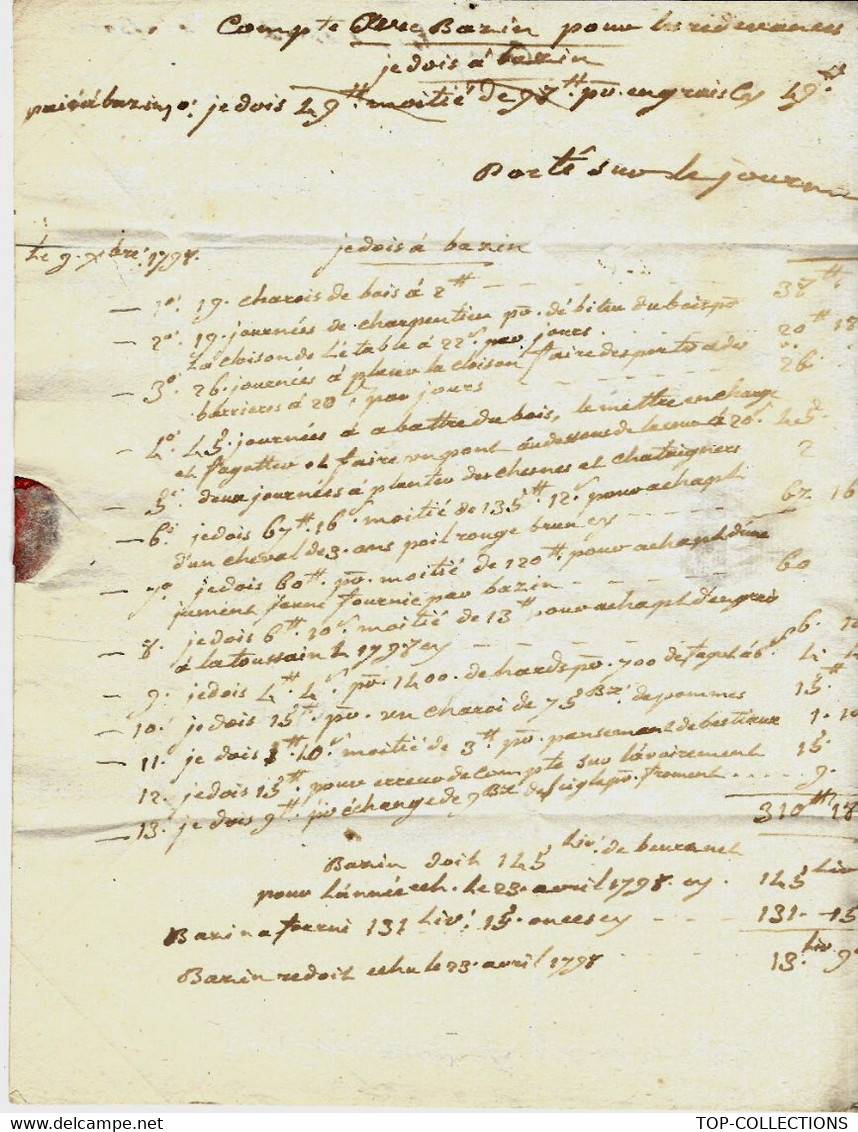 Compte Avec Bazin pour les redevances
je dois á bazin
paié á bazin 1o. je dois 49tt moitié de 98tt po. engrais Cy 49tt
Porté sur le journal
Le 9. xbre. 1798. je dois á bazin
— 1o. 19. charois de bois á 2tt - - - 38tt
— 2o. 19. journées de charpentier po. débiter du bois po
La cloison de L'étable á 22s par jours. 20tt 18
— 3o. 26. journées á placer la cloison faire des portes et des
barrieres á 20s par jours - - - 26.
— 4o. 45. journées á abattre du bois, le mettre en charge
et fagotter et faire un pont au dessous de la cour á 20s 45.
— 5o. deux journées á planter des chesnes et chataigners 2
— 6o. je dois 67tt 16s moitié de 135tt 12s pour achapt
d'un cheval de 3. ans poil rouge brun cy - - - 67 16
— 7o. je dois 60tt po. moitié de 120tt pour achapt d'une
jument jeune fournie par bazin - - - 60
— 8. je dois 6tt 10s moitié de 13tt pour achapt d'engrais
á la toussaint 1798 cy - - - 6. 10
— 9. je dois 4tt 4s po. 1400. de hards po. 700 de fagot á 6s 4. 4
— 10. je dois 15tt po. un charoi de 75 Bx. de pommes 15tt
— 11. je dois 1tt 10s moitié de 3tt po. pansement de bestiaux 1. 10
12. je dois 15tt pour erreur de compte sur l'avoirement 15.
— 13. je dois 9tt po échange de 9 Bx de seigle po. froment . . . . . 9.
310tt 18
Bazin doit 145 Liv. de beure net
pour l'année ech. Le 23. avril 1798. cy 145 Liv
Bazin a fourni 131 Liv. 15. onces cy - - - 131. - 15
Bazin redoit echu le 23. avril 1798 13. Liv 9
TOP-COLLECTIONS